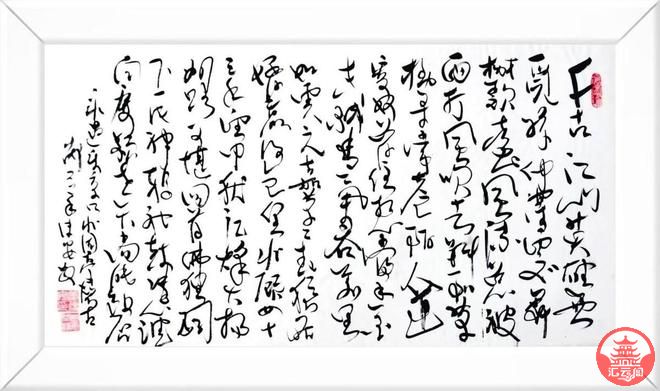 千古江山英雄无
觅孙仲谋处舞
榭歌台风流总被
雨打风吹去斜阳草
树寻常巷陌人道
寄奴曾住想当年金
戈铁马气吞万里
如虎元嘉草草封狼居
胥赢得仓皇北顾四十
三年望中犹记烽火扬
州路可堪回首佛狸祠
下一片神鸦社鼓凭谁
问廉颇老矣尚能饭否
永遇乐京口北固亭怀古
汇云阁